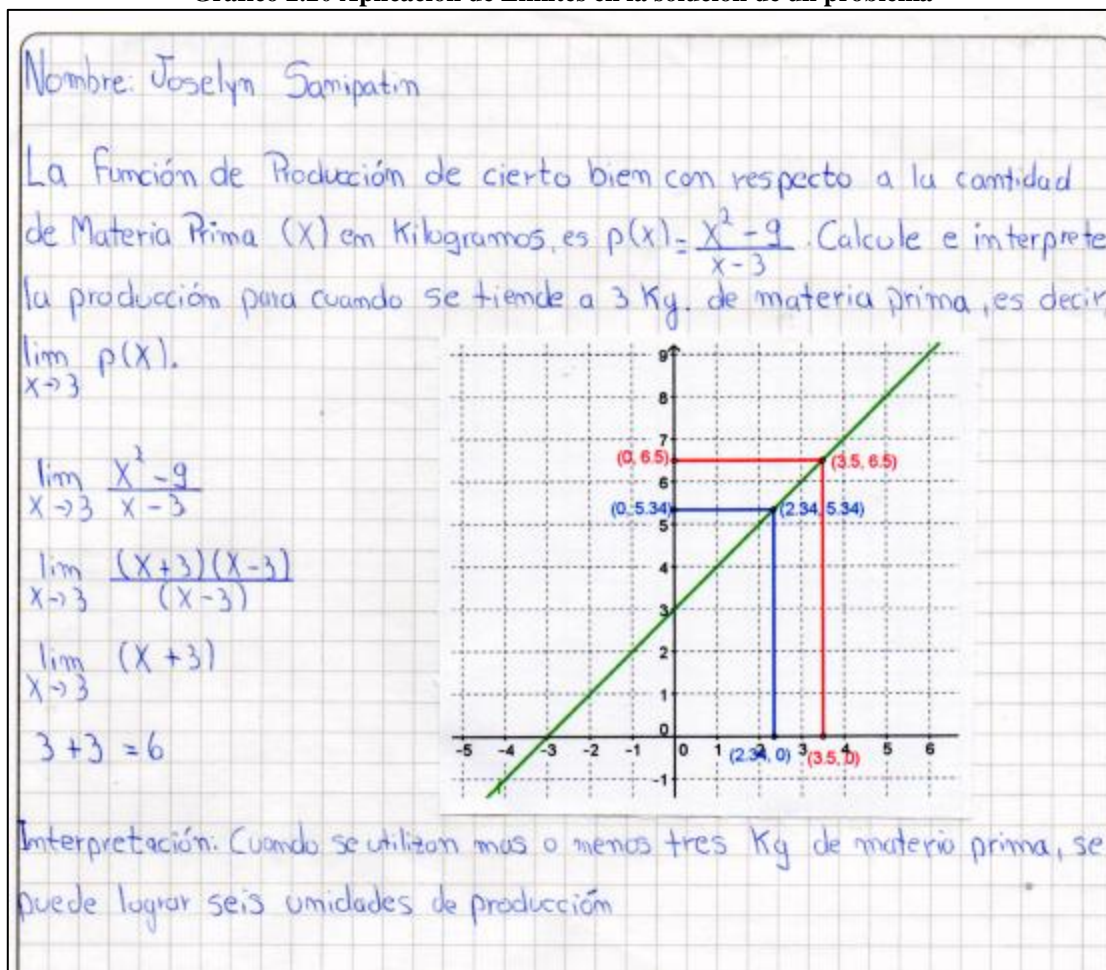 Nombre: Joselyn Sanipatin
La Función de Producción de cierto bien con respecto a la cantidad
de Materia Prima (X) en Kilogramos, es p(x) = \frac{x^2 - 9}{x - 3}. Calcule e interprete
la producción para cuando se tiende a 3 Kg. de materia prima, es decir,
lim x→3 p(X).
lim x→3 \frac{x^2 - 9}{x - 3}
lim x→3 \frac{(x+3)(x-3)}{(x-3)}
lim x→3 (x + 3)
3 + 3 = 6
9
8
7
(0, 6.5) (3.5, 6.5)
6
(0, 5.34) (2.34, 5.34)
5
4
3
2
1
0
-5 -4 -3 -2 -1 0 1 2 3 4 5 6
(2.34, 0) (3.5, 0)
-1
Interpretación: Cuando se utilizan mas o menos tres Kg de materia prima, se
puede lograr seis unidades de producción